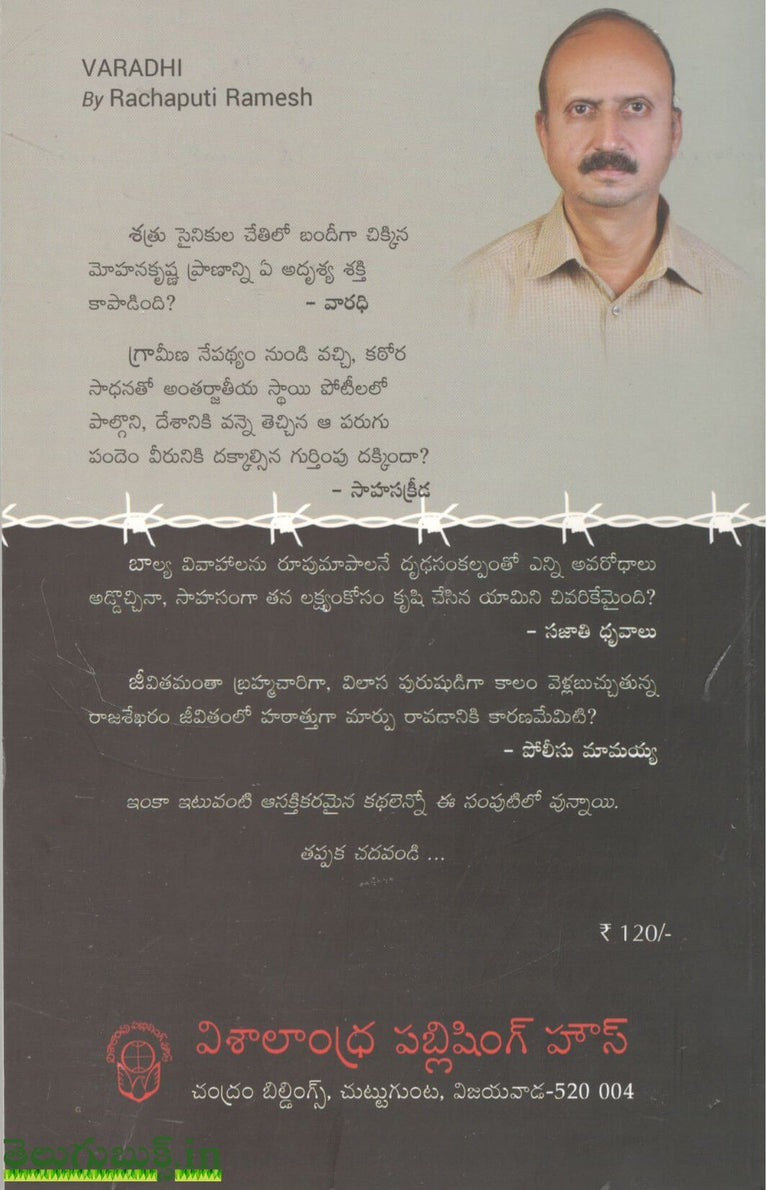 VARADHI
By Rachaputi Ramesh
శత్రు సైనికుల చేతిలో బందీగా చిక్కిన
మోహనకృష్ణ ప్రాణాన్ని ఏ అదృశ్య శక్తి
కాపాడింది? – వారధి
గ్రామీణ నేపథ్యం నుండి వచ్చి, కఠోర
సాధనతో అంతర్జాతీయ స్థాయి పోటీలలో
పాల్గొని, దేశానికి వన్నె తెచ్చిన ఆ పరుగు
పందెం వీరునికి దక్కాల్సిన గుర్తింపు దక్కిందా?
– సాహసక్రీడ
బాల్య వివాహాలను రూపుమాపాలనే దృఢసంకల్పంతో ఎన్ని అవరోధాలు
అడ్డొచ్చినా, సాహసంగా తన లక్ష్యంకోసం కృషి చేసిన యామిని చివరికేమైంది?
– సజాతి ధృవాలు
జీవితమంతా బ్రహ్మచారిగా, విలాస పురుషుడిగా కాలం వెళ్లబుచ్చుతున్న
రాజశేఖరం జీవితంలో హఠాత్తుగా మార్పు రావడానికి కారణమేమిటి?
– పోలీసు మామయ్య
ఇంకా ఇటువంటి ఆసక్తికరమైన కథలెన్నో ఈ సంపుటిలో వున్నాయి.
తప్పక చదవండి ...
₹ 120/-
విశాలాంధ్ర పబ్లిషింగ్ హౌస్
విశాలాంధ్ర పబ్లిషింగ్ హౌస్
చంద్రం బిల్డింగ్స్, చుట్టుగుంట, విజయవాడ-520 004
తెలుగుబుక్.in